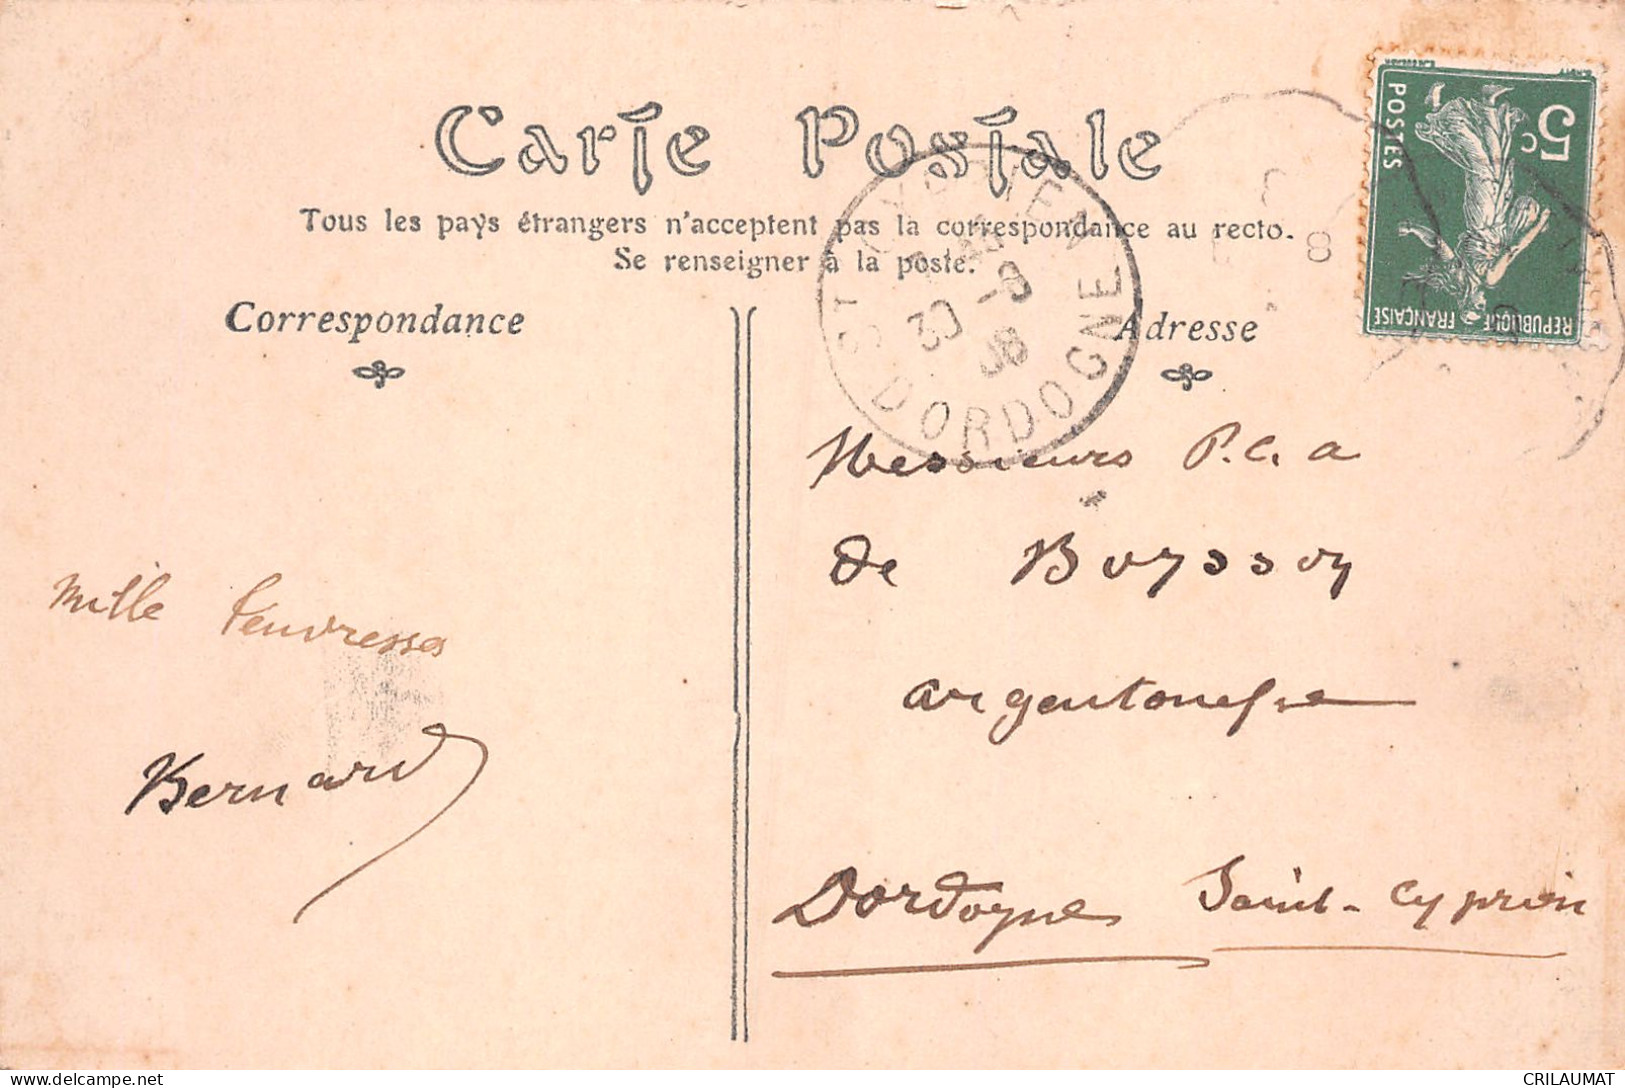 Carte Postale
Tous les pays étrangers n'acceptent pas la correspondance au recto.
Se renseigner à la poste.
Correspondance
Adresse
5c
POSTES
REPUBLIQUE FRANÇAISE
ST CYPRIEN
30 -8
08
DORDOGNE
8
Messieurs P. C. a
de Boysson
argentonesse
Dordogne Saint-Cyprien
Mille tendresses
Bernard
CRILAUMAT